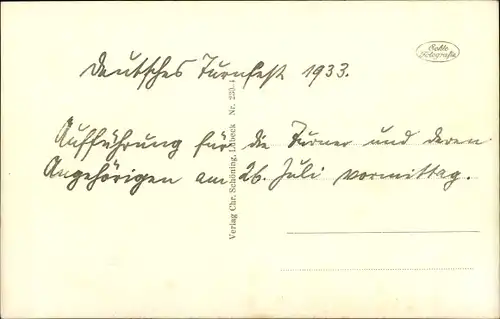 Echte
Fotografie
Deutsches Turnfest 1933.
Aufführung für die Turner und deren
Angehörigen am 26. Juli vormittag.
Verlag Chr. Schöning, Lübeck Nr. 230.4